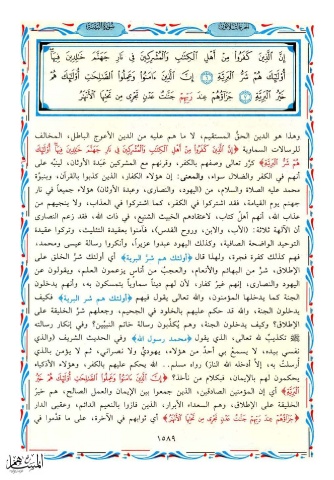 إِنَّ الَّذِينَ كَفَرُوا مِنْ أَهْلِ الْكِتَابِ وَالْمُشْرِكِينَ فِي نَارِ جَهَنَّمَ خَالِدِينَ فِيهَا
أُولَئِكَ هُمْ شَرُّ الْبَرِيَّةِ ﴿٦﴾ إِنَّ الَّذِينَ آمَنُوا وَعَمِلُوا الصَّالِحَاتِ أُولَئِكَ هُمْ
خَيْرُ الْبَرِيَّةِ ﴿٧﴾ جَزَاؤُهُمْ عِندَ رَبِّهِمْ جَنَّاتُ عَدْنٍ تَجْرِي مِن تَحْتِهَا الْأَنْهَارُ
وهذا هو الدين الحقُّ المستقيم، لا ما هم عليه من الدين الأعوج الباطل، المخالف
للرسالات السماوية ﴿إِنَّ الَّذِينَ كَفَرُوا مِنْ أَهْلِ الْكِتَابِ وَالْمُشْرِكِينَ فِي نَارِ جَهَنَّمَ خَالِدِينَ فِيهَا أُولَئِكَ
هُمْ شَرُّ الْبَرِيَّةِ﴾ كرَّر تعالى وصفهم بالكفر، وقرنهم مع المشركين عَبَدة الأوثان، لينبِّه على
أنهم في الكفر والضلال سواء، والمعنى: إن هؤلاء الكفار، الذين كذبوا بالقرآن، وبنبوَّة
محمد عليه الصلاة والسلام، من (اليهود، والنصارى، وعبدة الأوثان) هؤلاء جميعاً في نار
جهنم يوم القيامة، فقد اشتركوا في الكفر، كما اشتركوا في العذاب، ولا ينجيهم من
عذاب الله، أنهم أهل كتاب، لاعتقادهم الخبيث الشنيع، في ذات الله، فقد زعم النصارى
أن الآلهة ثلاثة: (الأب، والابن، وروح القدس)، فآمنوا بعقيدة التثليث، وتركوا عقيدة
التوحيد الواضحة الصافية، وكذلك اليهود عبدوا عزيراً، وأنكروا رسالة عيسى ومحمد،
فهم كذلك كفرة فجرة، ولهذا قال ﴿أولئك هم شرُّ البرية﴾ أي أولئك شرُّ الخلق على
الإطلاق، شرٌّ من البهائم والأنعام، والعجبُ من أناس يزعمون العلم، ويقولون عن
اليهود والنصارى، إنهم غيرُ كفار، لأن لهم ديناً سماوياً يتمسكون به، وأنهم يدخلون
الجنة كما يدخلها المؤمنون، والله تعالى يقول فيهم ﴿أولئك هم شر البرية﴾ فكيف
يدخلون الجنة، والله قد حكم عليهم بالخلود في الجحيم، وجعلهم شرَّ الخليقة على
الإطلاق؟ وكيف يدخلون الجنة، وهم يُكذِّبون رسالة خاتم النبيِّين؟ وفي إنكار رسالته
ﷺ تكذيبٌ لله تعالى، الذي يقول ﴿محمد رسول الله﴾ وفي الحديث الشريف (والذي
نفسي بيده، لا يسمعُ بي أحدٌ من هؤلاء، يهوديٌّ ولا نصراني، ثم لا يؤمن بالذي
أُرسلتُ به، إلَّا أدخله الله النار) رواه مسلم.. الله يحكم عليهم بالكفر، وهؤلاء الأذكياء
يحكمون لهم بالإيمان، فبكلام من نأخذ؟ ﴿إِنَّ الَّذِينَ آمَنُوا وَعَمِلُوا الصَّالِحَاتِ أُولَئِكَ هُمْ خَيْرُ
الْبَرِيَّةِ﴾ أي إن المؤمنين الصادقين، الذين جمعوا بين الإيمان والعمل الصالح، هم خيرُ
الخليقة على الإطلاق، وهم السعداء الأبرار، الذين فازوا بالنعيم الدائم، وعقبى الدار
﴿جَزَاؤُهُمْ عِندَ رَبِّهِمْ جَنَّاتُ عَدْنٍ تَجْرِي مِن تَحْتِهَا الْأَنْهَارُ﴾ أي ثوابهم في الآخرة، على ما قدَّموا في
١٥٨٩